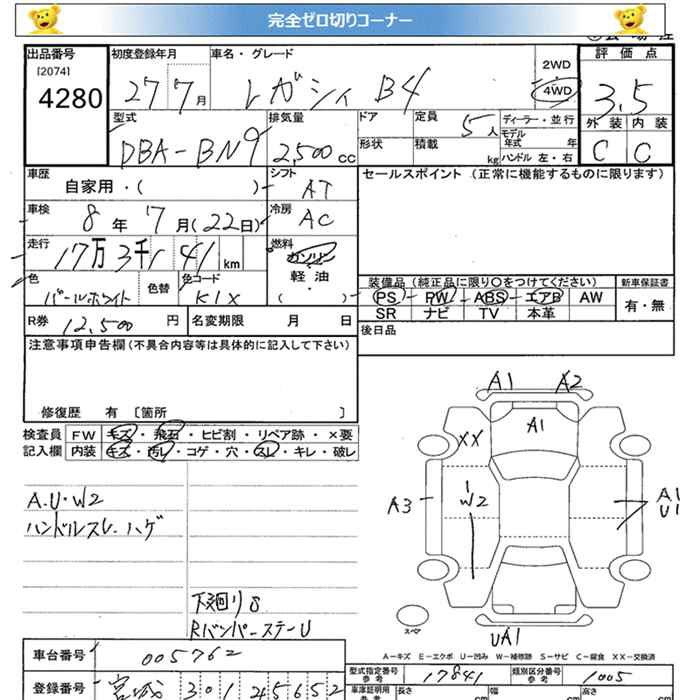 完全ゼロ切りコーナー
出品番号 初度登録年月 車名・グレード 2WD 評価点
[2074] 4280 27 7月 レガシィ B4 4WD 3.5
型式 排気量 ドア 定員 5人 ディーラー・並行 外装 内装
DBA-BN9 2,500cc 形状 積載 kg モデル年式 年 C C
ハンドル 左・右
車歴 シフト セールスポイント (正常に機能するものに限ります)
自家用・( ) AT
車検 冷房
8年 7月(22日) AC
走行 燃料
17万3千141km ガソリン
軽・油
( )
色 色替 色コード 装備品(純正品に限り○をつけてください) 新車保証書
パールホワイト K1X PS PW ABS エアB AW 有・無
SR ナビ TV 本革
R券 12,500円 名変期限 月 日 後日品
注意事項申告欄(不具合内容等は具体的に記入して下さい)
修復歴 有 [箇所 ]
検査員 FW キズ・飛石・ヒビ割・リペア跡・×要
記入欄 内装 キズ・汚レ・コゲ・穴・スレ・キレ・破レ
A1 A2
A1
XX
A.U・W2 A3 W2 A1
U1
ハンドルスレ ハゲ
下廻りS
RバンパーステーU
スペア
UA1
A-キズ E-エクボ U-凹み W-補修跡 S-サビ C-腐食 XX-交換済
車台番号 005762 型式指定番号 参考 17841 類別区分番号 参考 1005
登録番号 宮城 301 そ 5652 車庫証明用 参考 長さ cm 幅 cm 高さ cm